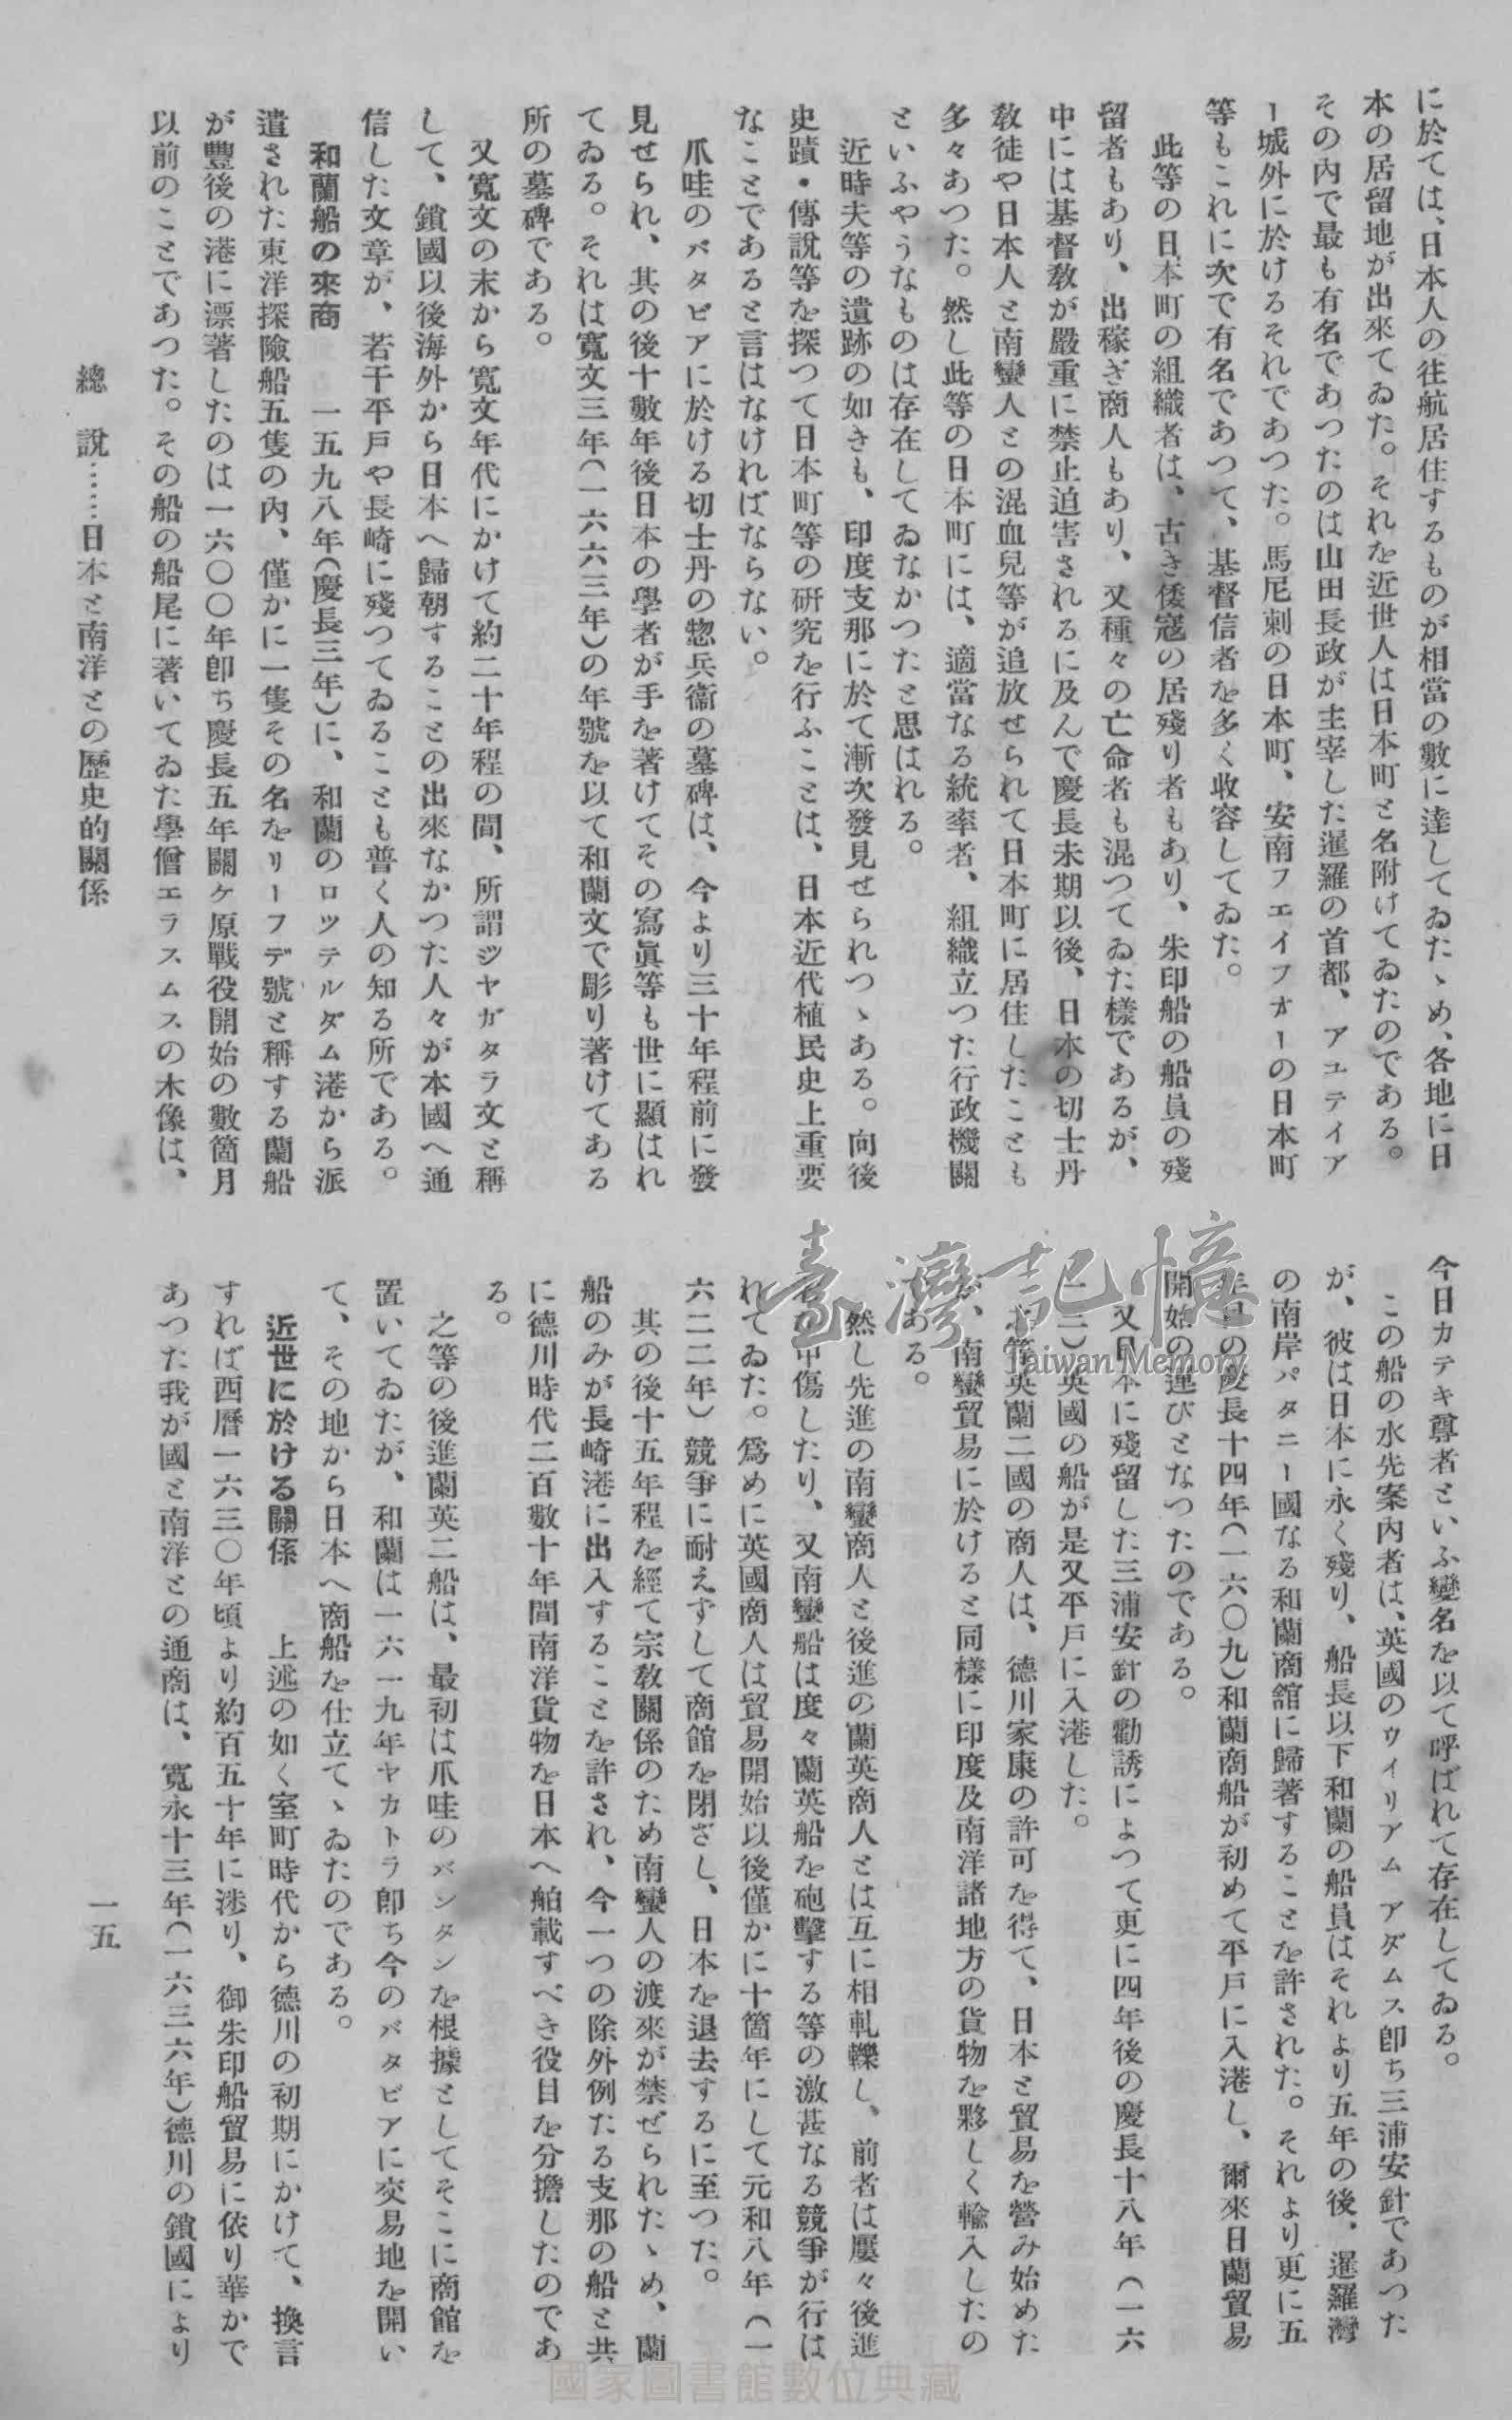 に於ては、日本人の往航居住するものが相當の數に達してゐたゝめ、各地に日
本の居留地が出來てゐた。それを近世人は日本町と名附けてゐたのである。
その內で最も有名であつたのは山田長政が主宰した暹羅の首都、アユテイア
ー城外に於けるそれであつた。馬尼剌の日本町、安南フエイフオーの日本町
等もこれに次で有名であつて、基督信者を多く收容してゐた。
此等の日本町の組織者は、古き倭寇の居殘り者もあり、朱印船の船員の殘
留者もあり、出稼ぎ商人もあり、又種々の亡命者も混つてゐた樣であるが、
中には基督敎が嚴重に禁止迫害されるに及んで慶長末期以後、日本の切士丹
敎徒や日本人と南蠻人との混血兒等が追放せられて日本町に居住したことも
多々あつた。然し此等の日本町には、適當なる統率者、組織立つた行政機關
といふやうなものは存在してゐなかつたと思はれる。
近時夫等の遺跡の如きも、印度支那に於て漸次發見せられつゝある。向後
史蹟・傳說等を探つて日本町等の硏究を行ふことは、日本近代植民史上重要
なことであると言はなければならない。
爪哇のバタビアに於ける切士丹の惣兵衞の墓碑は、今より三十年程前に發
見せられ、其の後十數年後日本の學者が手を著けてその寫眞等も世に顯はれ
てゐる。それは寬文三年(一六六三年)の年號を以て和蘭文で彫り著けてある
所の墓碑である。
又寬文の末から寬文年代にかけて約二十年程の間、所謂ジヤガタラ文と稱
して、鎖國以後海外から日本へ歸朝することの出來なかつた人々が本國へ通
信した文章が、若干平戶や長崎に殘つてゐることも普く人の知る所である。
和蘭船の來商　一五九八年(慶長三年)に、和蘭のロツテルダム港から派
遣された東洋探險船五隻の內、僅かに一隻その名をリーフデ號と稱する蘭船
が豐後の港に漂著したのは一六〇〇年卽ち慶長五年關ケ原戰役開始の數箇月
以前のことであつた。その船の船尾に著いてゐた學僧エラスムスの木像は、
今日カテキ尊者といふ變名を以て呼ばれて存在してゐる。
この船の水先案內者は、英國のウイリアム アダムス卽ち三浦安針であつた
が、彼は日本に永く殘り、船長以下和蘭の船員はそれより五年の後、暹羅灣
の南岸パタニー國なる和蘭商舘に歸著することを許された。それより更に五
年目の慶長十四年(一六〇九)和蘭商船が初めて平戶に入港し、爾來日蘭貿易
開始の運びとなつたのである。
又日本に殘留した三浦安針の勸誘によつて更に四年後の慶長十八年(一六
一三)英國の船が是又平戶に入港した。
此等英蘭二國の商人は、德川家康の許可を得て、日本と貿易を營み始めた
が、南蠻貿易に於けると同樣に印度及南洋諸地方の貨物を夥しく輸入したの
である。
然し先進の南蠻商人と後進の蘭英商人とは互に相軋轢し、前者は屢々後進
者を中傷したり、又南蠻船は度々蘭英船を砲擊する等の激甚なる競爭が行は
れてゐた。爲めに英國商人は貿易開始以後僅かに十箇年にして元和八年(一
六二二年)競爭に耐えずして商館を閉ざし、日本を退去するに至つた。
其の後十五年程を經て宗敎關係のため南蠻人の渡來が禁ぜられたゝめ、蘭
船のみが長崎港に出入することを許され、今一つの除外例たる支那の船と共
に德川時代二百數十年間南洋貨物を日本へ舶載すべき役目を分擔したのであ
る。
之等の後進蘭英二船は、最初は爪哇のバンタンを根據としてそこに商館を
置いてゐたが、和蘭は一六一九年ヤカトラ卽ち今のバタビアに交易地を開い
て、その地から日本へ商船を仕立てゝゐたのである。
近世に於ける關係　上述の如く室町時代から德川の初期にかけて、換言
すれば西曆一六三〇年頃より約百五十年に涉り、御朱印船貿易に依り華かで
あつた我が國と南洋との通商は、寬永十三年(一六三六年)德川の鎖國により
總　說……日本と南洋との歷史的關係
一五
臺灣記憶
Taiwan Memory
國家圖書館數位典藏